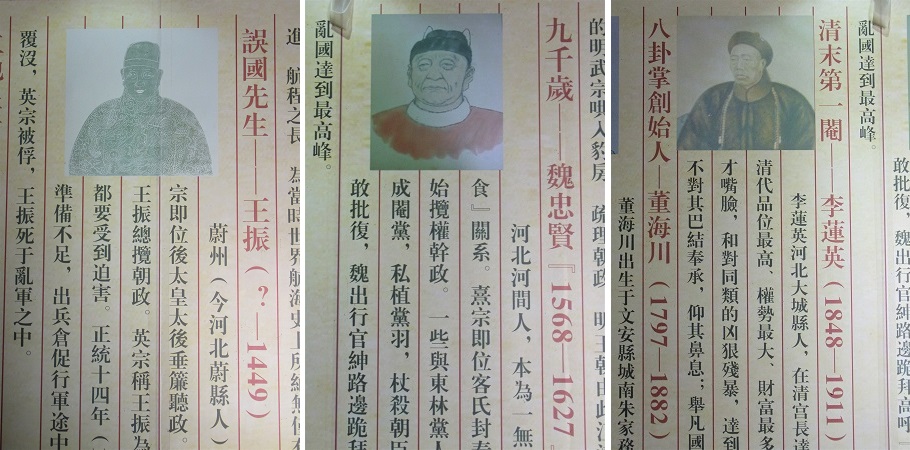 進，航程之長，為當時世界航海史
誤國先生——王振（？—1449）
蔚州（今河北蔚縣人）
宗即位後太皇太後垂簾聽政。
王振總攬朝政。英宗稱王振為
都要受到迫害。正統十四年（
準備不足，出兵倉促行軍途中
覆沒，英宗被俘，王振死于亂軍之中。
的明武宗 入豹房 疏理朝政 明王朝由此
九千歲——魏忠賢『1568—1627
河北河間人，本為一無
食』關系。熹宗即位客氏封奉
始攬權幹政。一些與東林黨人
成閹黨，私植黨羽，杖殺朝臣
敢批復，魏出行官紳路邊跪拜
亂國達到最高峰。
敢批復，魏出行官紳路邊跪拜高呼『
亂國達到最高峰。
清末第一閹——李蓮英（1848—1911）
李蓮英河北大城縣人，在清宮長達
清代品位最高、權勢最大、財富最多
才嘴臉，和對同類的凶狠殘暴，達到
不對其巴結奉承，仰其鼻息；舉凡國
八卦掌創始人——董海川（1797—1882）
董海川出生于文安縣城南朱家務